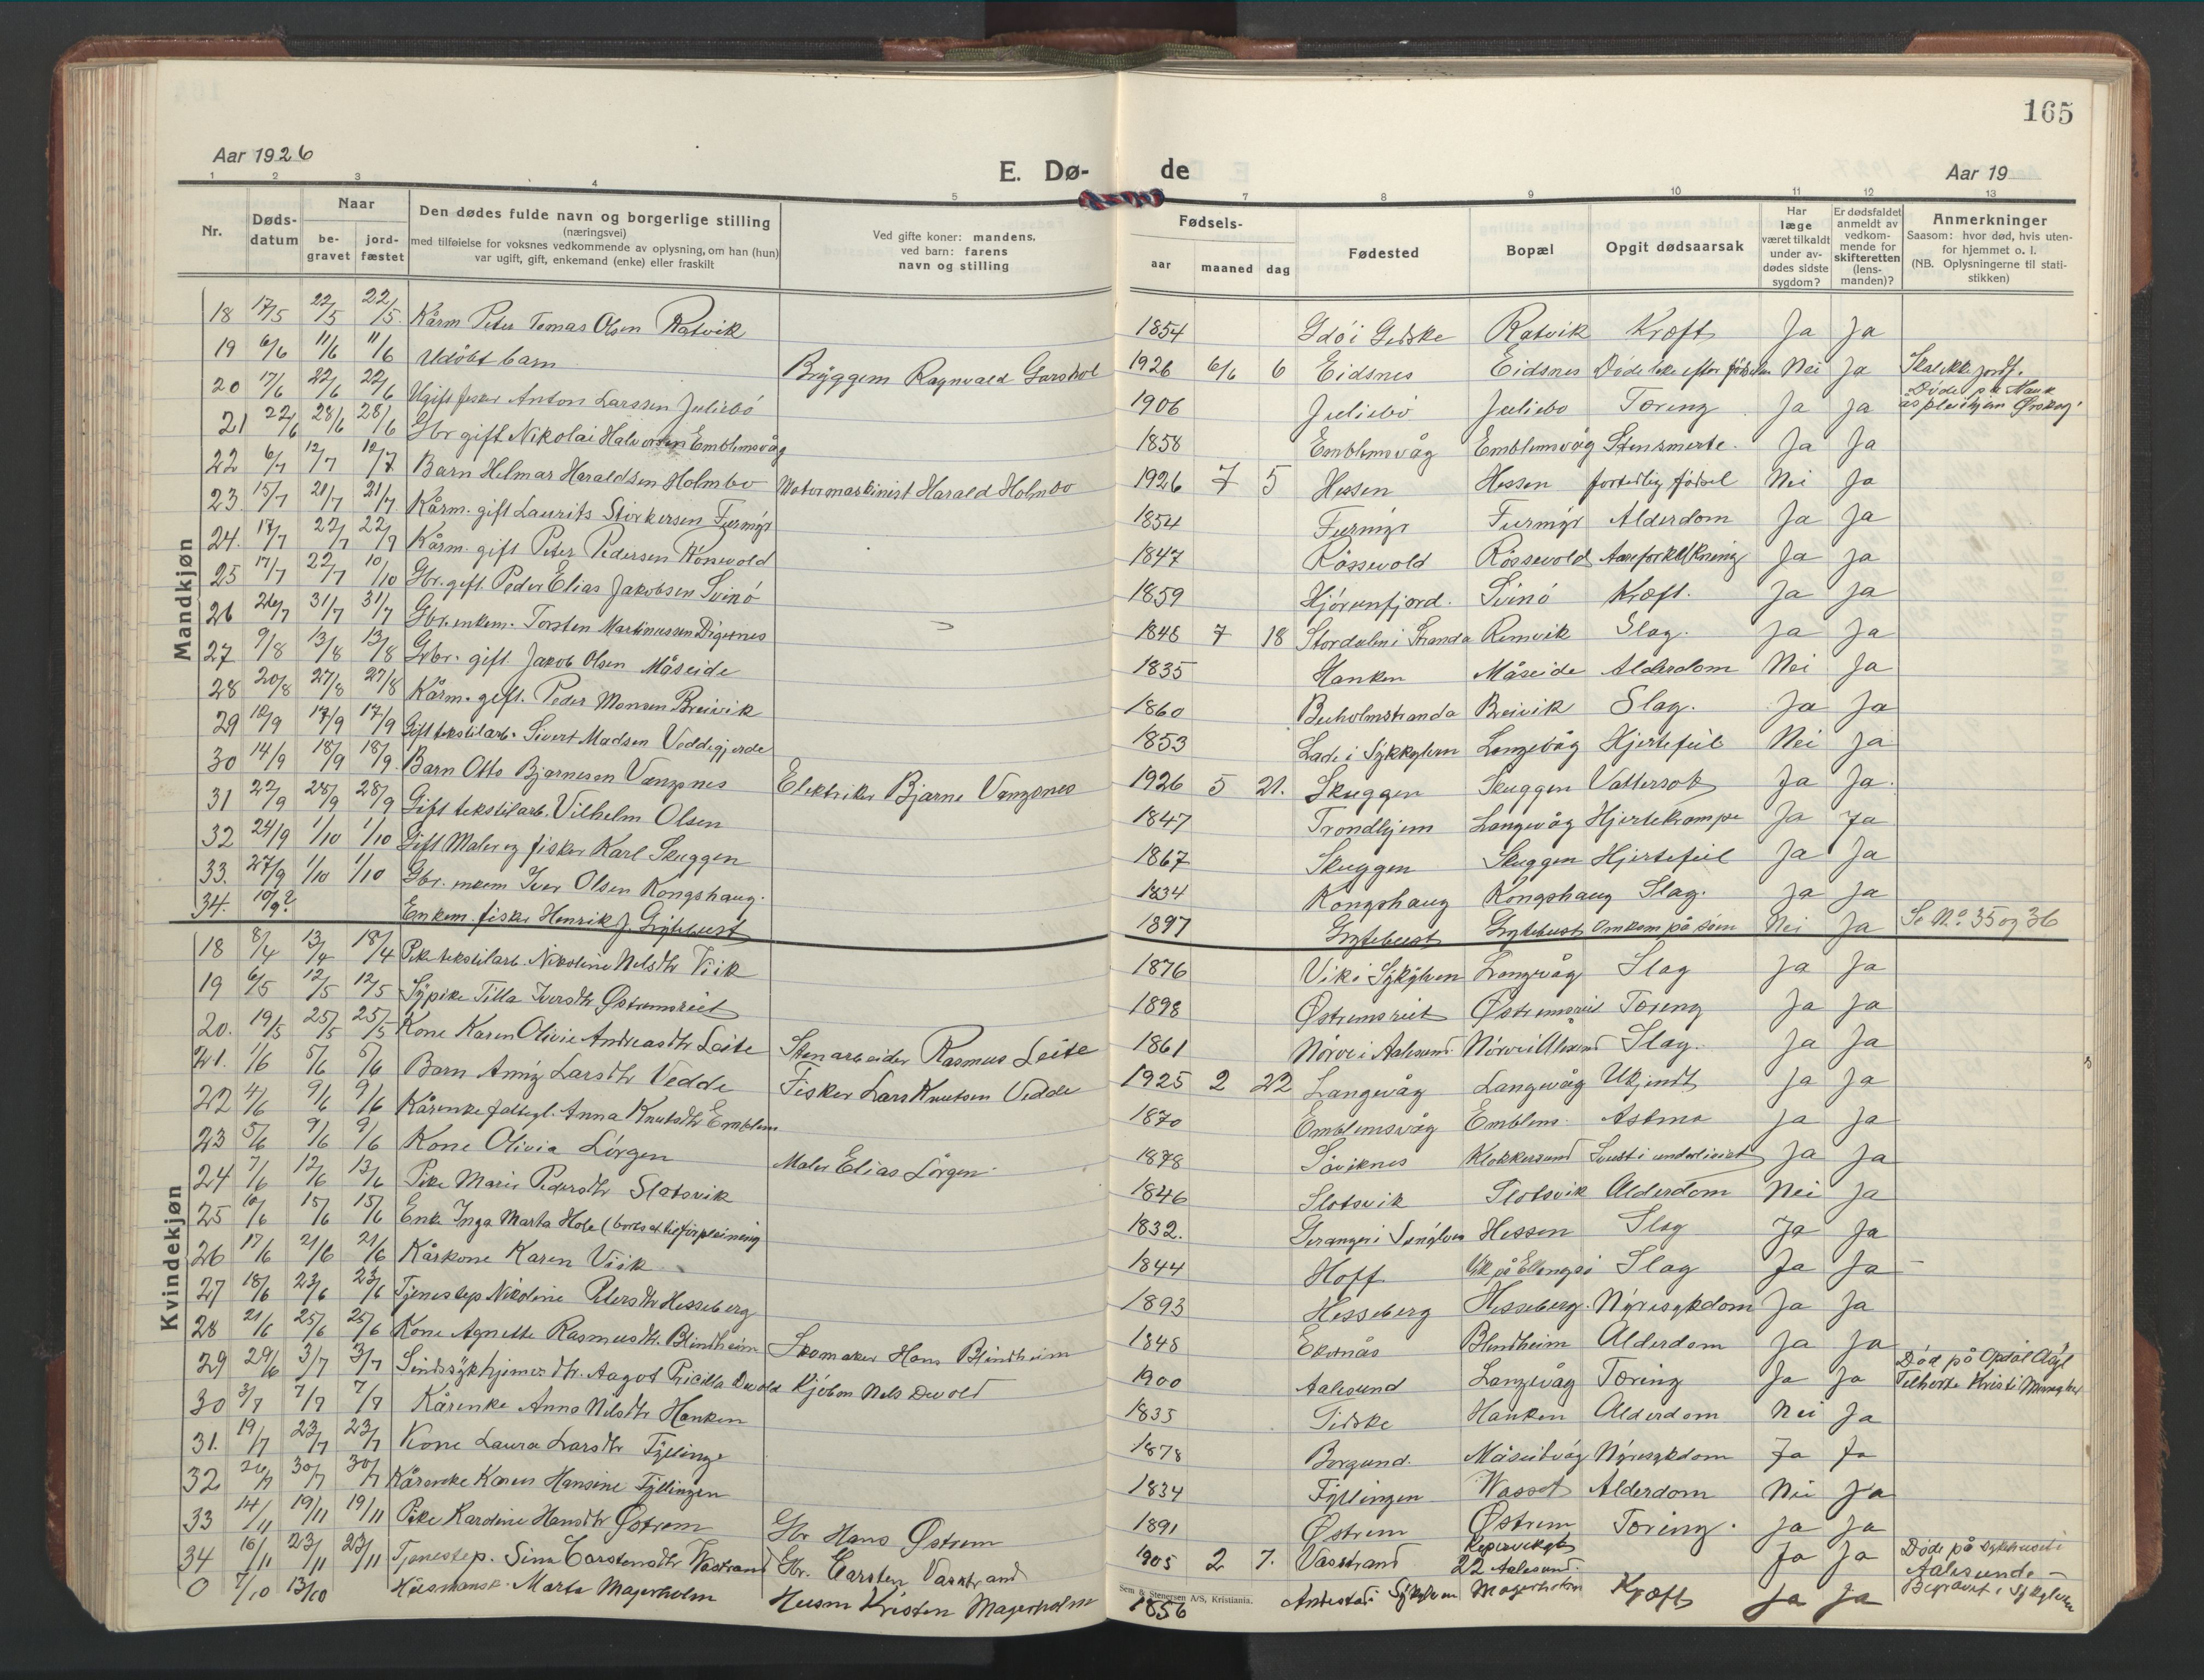 165
Aar 1926
E. Dø-
de
Aar 19
1 2 3 4 5 7 8 9 10 11 12 13
Nr.
Døds-
datum
Naar
be-
gravet
jord-
fæstet
Den dødes fulde navn og borgerlige stilling
(næringsvei)
med tilføielse for voksnes vedkommende av oplysning, om han (hun)
var ugift, gift, enkemand (enke) eller fraskilt
Ved gifte koner: mandens,
ved barn: farens
navn og stilling
Fødsels-
aar
maaned
dag
Fødested
Bopæl
Opgit dødsaarsak
Har
læge
været tilkaldt
under av-
dødes sidste
sygdom?
Er dødsfaldet
anmeldt av
vedkom-
mende for
skifteretten
(lens-
manden)?
Anmerkninger
Saasom: hvor død, hvis uten-
for hjemmet o. l.
(NB. Oplysningerne til stati-
stikken)
Mandkjøn
18 17/5 22/5 22/5 Kårm Peter Tomas Olsen Ratvik 1854 Ratvik Kræft Ja Ja
19 6/6 11/6 11/6 Udøbt barn Bryggem Ragnvald Garshol 1926 6/6 6 Eidsnes Eidsnes Døde like efter fødselen Nei Ja Skal ikke jordf.
20 17/6 22/6 22/6 Ugift fisker Anton Larssen Juliebö 1906 Juliebö Juliebö Tæring Ja Ja Døde på Mauk
ås pleiehjem Ørskog
21 22/6 28/6 28/6 Gbr gift Nikolai Halvorsen Emblemsvåg 1858 Emblemsvåg Emblemsvåg Stensmerte. Ja Ja
22 6/7 12/7 12/7 Barn Helmar Haraldsen Holmbo Motormaskinist Harald Holmbo 1926 7 5 Hessen Hessen fortidlig fødsel Nei Ja
23. 15/7 21/7 21/7 Kårm. gift Laurits Storkersen Furmyr 1854 Furmyr Furmyr Alderdom Ja Ja
24. 17/7 22/7 22/7 Kårm. gift Peter Pedersen 1847 Røssevold Røssevold Aareforkalkning Ja Ja
25 17/7 22/7 10/10 Gbr. gift. Peder Elias Jakobsen Svinö 1859 Hjörunfjord. Svinö Kræft. Ja Ja
26 26/7 31/7 31/7 Gbr. enkem. Torsten Martinussen Digernes 1848 7 18 Stordalen i Stranda Remvik Slag. Ja Ja
27 9/8 13/8 13/8 Gbr. gift. Jakob Olsen Måseide 1835 Hanken Måseide Alderdom Nei Ja
28 20/8 27/8 27/8 Kårm. gift. Peder Monsen Breivik 1860 Breivik Slag. Ja Ja
29 12/9 17/9 17/9 Gift tekstilarb. Sivert Madsen Veddegjerde 1853 Lade i Sykkylven Langevåg Hjertefeil Nei Ja
30 14/9 18/9 18/9. Barn Otto Bjarnesen Vangsnes Elektriker Bjarne Vangsnes 1926 5 21. Skuggen Skuggen Vattersot Ja Ja.
31 22/9 28/9 28/9 Gift tekstilarb. Vilhelm Olsen 1847 Trondhjem Langevåg Hjertekrampe Ja Ja
32 24/9 1/10 1/10 Gift Maler og fisker Karl Skuggen 1867 Skuggen Skuggen Hjertefeil Ja Ja
33. 27/9 1/10 1/10 Gbr. enkem Iver Olsen Kongshaug. 1834 Kongshaug Kongshaug Slag. Ja Ja
34. 10/9? Enkem. fisker Henrik J. Gjytebust 1897 Omkom på sjøen Nei Ja Se No. 35 og 36
Kvindekjøn
18 8/4 13/4 18/4 Pike tekstilarb. Nikoline Nilsdtr Viik 1876 Vik i Sykylven Langevåg Slag Ja Ja
19 6/5 12/5 12/5 Sypike Tilla Iversdtr Østremsreit 1898 Østremsreit Østremsreit Tæring Ja Ja
20. 19/5 25/5 25/5 Kone Karen Olivie Andreasdtr Leite Stenarbeider Rasmus Leite 1861 Nörve i Aalesund Nörve i Slag. Ja Ja
21. 1/6 5/6 5/6 Barn Anny Larsdtr Vedde Fisker Lars Knutsen Vedde 1925 2 22 Langevåg Langevåg Ukjendt Ja Ja
22 4/6 9/6 9/6 Kårenke Anna Knutsdtr Emblem 1870 Emblemsvåg Emblem Astma Ja Ja
23 5/6 9/6 9/6 Kone Olivia Lörgen Maler Elias Lörgen. 1878 Söviknes Klokkersund Svulst i underlivet Ja Ja
24 7/6 12/6 13/6 Pike Marie Pedersdtr Slotsvik 1846 Slotsvik Slotsvik Alderdom Nei Ja
25 10/6 15/6 15/6 Enke Inga Marta Hole 1832. Hessen Slag Ja Ja
26 17/6 21/6 21/6 Kårkone Karen Viik 1844 Hoff Vik på Ellingsö Slag Ja Ja
27 18/6 23/6 23/6 Tjenestep Nikoline Petersdtr Hesseberg 1893 Hesseberg Hesseberg. Nyresykdom Ja Ja
28 21/6 25/6 25/6 Kone Agnette Rasmusdtr. Blindheim Skomaker Hans Blindheim 1848 Ekornås Blindheim Alderdom Ja Ja
29 29/6 3/7 3/7 Aagot Pricilla Devold Kjöbm Nils Devold 1900 Aalesund Langevåg Tæring Ja Ja Död på Opdøl Asyl
30 3/7 7/7 7/7 Kårenke Anna Nilsdtr Hanken 1835 Hanken Alderdom Nei Ja
31. 19/7 23/7 23/7 Kone Laura Larsdtr Fyllinge 1878 Borgund. Nyresykdom Ja Ja
32 26/7 30/7 30/7 Kårenke Karen Hansine Fyllingen 1834 Fyllingen Alderdom Nei Ja
33 14/11 19/11 19/11 Pike Karoline Hansdtr Østrem Gbr Hans Østrem 1891 Østrem Østrem Tæring. Ja Ja
34 16/11 23/11 23/11 Tjenestep. Sina Carstensdtr Vasstrand Gbr. Carsten Vasstrand 1905 2 7. Vasstrand 22 Aalesund. Ja Ja Døde på sykehuset i
Aalesund
0 7/10 13/10 Marta Magerholm Husm Kristen Magerholm 1856 Sykylven Magerholm Kræft Ja Ja Begravet i Sykylven
Sem & Stenersen A/S, Kristiania.